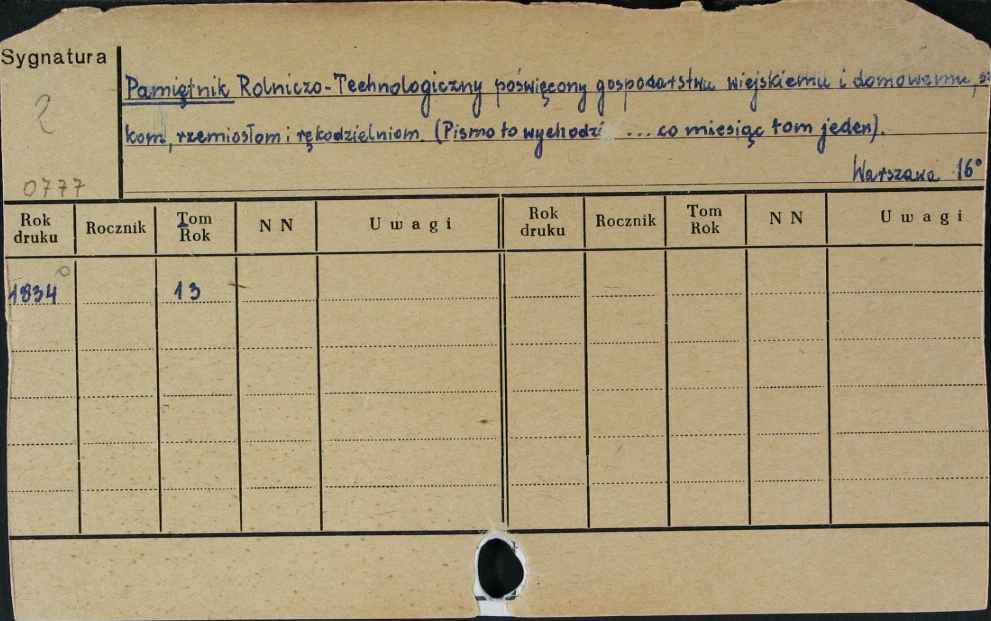 Sygnatura
Pamiętnik Rolniczo-Technologiczny poświęcony gospodarstwu wiejskiemu i domowemu,
2
kom, rzemiosłom i rękodzielniom. (Pismo to wychodzi ... co miesiąc tom jeden).
Warszawa 16°
0777
Rok druku Rocznik Tom Rok NN Uwagi Rok druku Rocznik Tom Rok NN Uwagi
1834 13